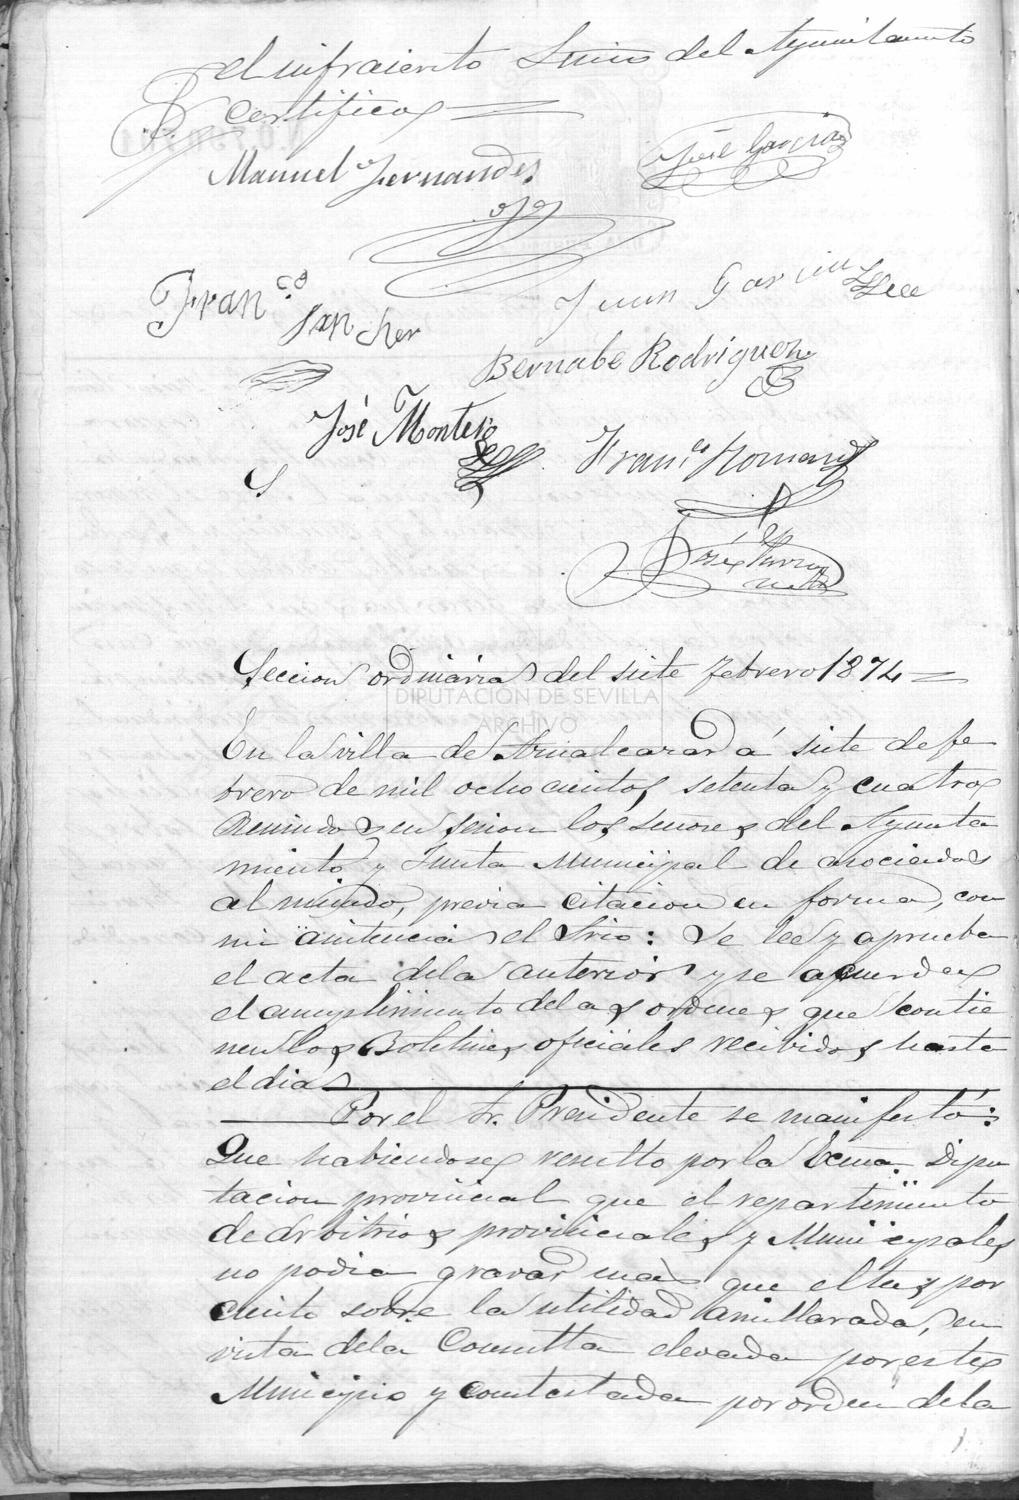 el infrascrito Srio del Ayuntamiento
Certifico=
José Garcia
Manuel Fernandes
Franco Sxncher
Juan Garcia
Bernabe Rodriguez
José Montero
Franco Roman
José
Seccion ordinaria del siete Febrero 1874=
DIPUTACIÓN DE SEVILLA
ARCHIVO
En la villa de Aznalcazar á siete de fe
brero de mil ochocientos setenta y cuatro
Reunidos en sesion los señores del Ayunta
miento y Junta Municipal de asociados
al mismo, previa citacion en forma, con
mi asistencia el Srio: Se lee y aprueba
el acta dela anterior y se acuerda
el cumplimiento delas ordenes que contie
nen los Boletines oficiales recibidos hasta
el dia
Por el Sr. Presidente se manifestó:
Que habiendose resuelto por la Exma. Dipu
tacion provincial que el repartimiento
de arbitrios provinciales y Municipales
no podia gravar mas que el tres por
ciento sobre la utilidad amillarada, en
vista dela Consulta elevada por este
Municipio y contestada por orden dela